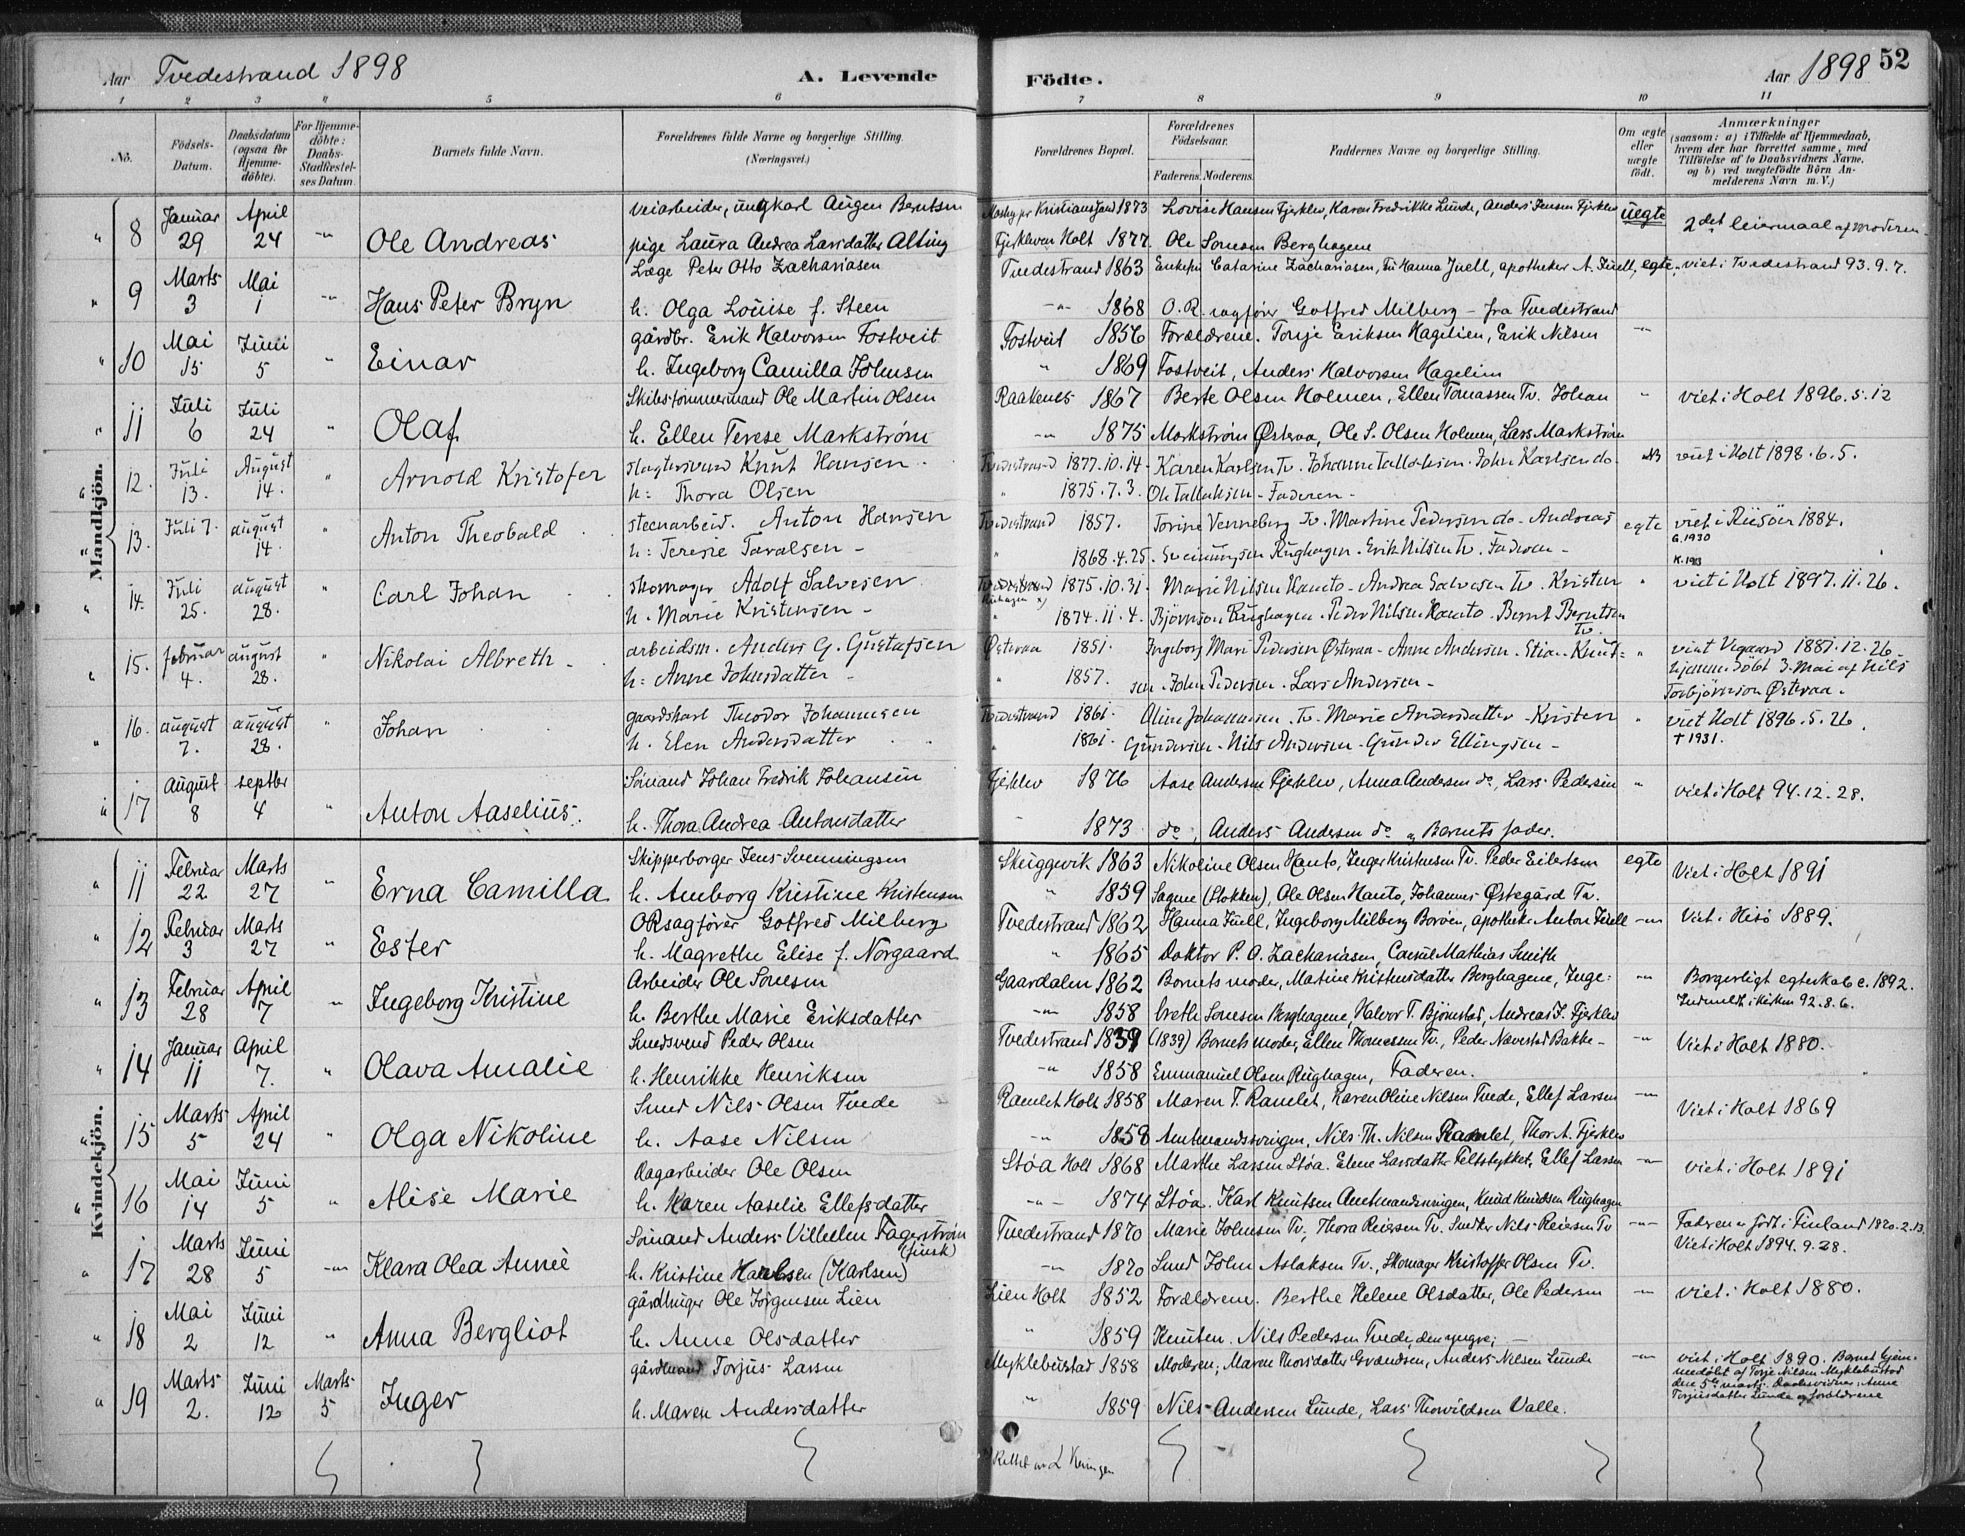 Aar Tvedestrand 1898
A. Levende
Födte.
Aar 1898
52
1 2 3 4 5 6 7 8 9 10 11
No.
Födsels-Datum.
Daabsdatum (ogsaa for Hjemmedöbte).
For Hjemmedöbte: Daabs-Stadfæstelses Datum.
Barnets fulde Navn.
Forældrenes fulde Navne og borgerlige Stilling. (Næringsvei.)
Forældrenes Bopæl.
Forældrenes Födselsaar.
Faderens. Moderens.
Faddernes Navne og borgerlige Stilling.
Om ægte eller uægte födt.
Anmærkninger
(saasom: a) i Tilfælde af Hjemmedaab,
hvem der har forrettet samme, med
Tilföielse af to Daabsvidners Navne,
og b) ved uægtefödte Börn An-
melderens Navn m. V.)
Mandkjön.
8 Januar 29 April 24 Ole Andreas
Veiarbeider, ungkarl Augen Berntsen
pige Laura Andrea Larsdatter Alting
Mosby pr Kristianssand 1873 Lovise Hansen Fjerklev, Karen Fredrikke Lunde, Anders Jensen Fjerklev uegte
Fjerkleven Holt 1877 Ole Sonesen Berghagene
2det leiermaal af moderen
9 Marts 3 Mai 1 Hans Peter Bryn
Læge Peter Otto Zachariasen
h. Olga Louise f. Steen
Tvedestrand 1863 Enkefru Catarine Zachariasen, Fru Hanna Juell, apotheker A. Juell, egte
1868 O.R. sagfører Gotfred Milberg - fra Tvedestrand
viet i Tvedestrand 93.9.7.
10 Mai 15 Juni 5 Einar
gårdbr. Erik Halvorsen Fostveit
h. Ingeborg Camilla Johnsen
Fostveit 1856 Forældrene. Tonje Eriksen Hagelien, Erik Nilsen
1869 Fostveit, Anders Halvorsen Hagelien
11 Juli 6 Juli 24 Olaf
Skibstømmermand Ole Martin Olsen
h. Ellen Terese Markstrøm
Raakenes 1867 Berte Olsen Holmen, Ellen Tomassen Tv. Johan
1875 Markstrøm Østeraa, Ole S. Olsen Holmen, Lars Markstrøm
viet i Holt 1896.5.12
12. Juli 13. August 14. Arnold Kristofer
slagtersvend Knut Hansen
h: Thora Olsen
Tvedestrand 1877.10.14. Karen Karlsen Tv. Johanne Tallaksen. John Karlsen do.
1875.7.3. Ole Tallaksen - Faderen -
viet i Holt 1898.6.5.
13. Juli 7. august 14. Anton Theobald
steenarbeid. Anton Hansen
h: Teresie Taralsen -
Tvedestrand 1857. Torine Venneberg Tv. Martine Pedersen do - Andreas egte
1868.4.25. Sveinungsen Rughagen. Erik Nilsen Tv. Faderen -
viet i Riisöer 1884.
G. 1930
K. 1913
14. Juli 25. august 28. Carl Johan
skomager Adolf Salvesen
h. Marie Kristensen -
Tvedestrand 1875.10.31. Marie Nilsen Hauto - Andrea Salvesen Tv. Kristen
1874.11.4. Bjørnson Rughagen. Peder Nilsen Hauto. Bernt Berntsen Tv.
viet i Holt 1897.11.26.
15. februar 4. august 28. Nikolai Albreth
arbeidsm. Anders G. Gustafsen
h: Anne Johnsdatter
Østeraa 1851. Ingeborg Marie Pedersen Østeraa - Anne Andersen. Stian Knut=
1857. sen. John Pedersen. Lars Andersen -
viet Vegaard 1881.12.26.
hjemmedöbt 3. Mai af Nils
Torbjörnson Østeraa.
16. august 7. august 28. Johan
gaardskarl Theodor Johannesen
h. Elen Andersdatter
Tvedestrand 1861. Oline Johannesen. Tv. Marie Andersdatter - Kristen
1861. Gundersen. Nils Andersen. Gunder Ellingsen -
viet Holt 1896.5.26.
† 1931.
17 August 8 septber 4 Anton Aaselius
Sömand Johan Fredrik Johansen
h. Thora Andrea Antonsdatter
Fjerklev 1876 Aase Andersen Fjerklev, Anna Andersen do, Lars Pedersen
1873 do, Anders Andersen do og Barnets fader.
viet i Holt 94.12.28.
Kvindekjön.
11 Februar 22 Marts 27 Erna Camilla
Skipperborger Jens Svenningsen
h. Amborg Kristine Kristensen
Skuggevik 1863 Nikoline Olsen Hauto, Inger Kristensen Tv. Peder Eilertsen egte
1859 Sagene (Stokken), Ole Olsen Hauto, Johannes Østegård Tv.
Viet i Holt 1891
12 Februar 3 Marts 27 Ester
ORsagfører Gotfred Milberg
h. Magrethe Elise f. Norgaard
Tvedestrand 1862 Hanna Juell, Ingeborg Milberg Borøen, apotheker Anton Juell
1865 Doktor P. O. Zachariasen, Consul Mathias Smith
Viet i Hisö 1889.
13 Februar 28 April 7 Ingeborg Kristine
Arbeider Ole Sonesen
h. Berthe Marie Eriksdatter
Gaardalen 1862 Barnets moder, Martine Kristensdatter Berghagene, Inge:
1858 breth Sonesen Berghagene, Halvor T. Bjørnstad, Andreas J. Fjerklev
Borgerligt egteskab c. 1892.
Indmeldt i kirken 92.8.6.
14 Januar 11 April 7. Olava Amalie
Smedsvend Peder Olsen
h. Henrikke Henriksen
Tvedestrand 1839 (1839) Barnets moder, Ellen Thomesen Tv., Peder Næverstad Bakke-
1858 Emmanuel Olsen Rughagen, Faderen.
Viet i Holt 1880.
15 Marts 5 April 24 Olga Nikoline
Smed Nils Olsen Tvede
h. Aase Nilsen
Ramlet Holt 1858 Maren T. Ramlet, Karen Oline Nilsen Tvede, Ellef Larsen
1858 Amtmandssvingen, Nils Th. Nilsen Ramlet, Thor A. Fjerklev
Viet i Holt 1869
16 Mai 14 Juni 5 Alise Marie
Dagarbeider Ole Olsen
h. Karen Aaselie Ellefsdatter
Støa Holt 1868 Marthe Larsen Støa. Elene Larsdatter Feltstykket, Ellef Larsen
1874 Støa. Karl Knutsen Amtmandsvingen, Knud Knudsen Rughagen
viet i Holt 1891
17 Marts 28 Juni 5 Klara Olea Annie
Sömand Anders Vilhelm Fagerstrøm (finsk)
h. Kristine (Karlsen)
Tvedestrand 1870 Marie Johnsen Tv., Thora Reiersen Tv. Snedker Nils Reiersen Tv
1870 Smed John Aslaksen Tv., Skomager Kristoffer Olsen Tv.
Faderen er født i Finland 1870.2.13.
Viet i Holt 1894.9.28.
18 Mai 2 Juni 12 Anna Bergliot
gårdbruger Ole Jørgensen Lien
h. Anne Olsdatter
Lien Holt 1852 Forældrene. Berthe Helene Olsdatter, Ole Pedersen
1859 Knuten. Nils Pedersen Tvede, den yngre;
viet i Holt 1880.
19 Marts 2. Juni 12 Marts 5 Inger
gårdmand Torjus Larsen
h. Maren Andersdatter
Myklebustad 1858 Moderen, Maren Thorsdatter Gvændsen, Anders Nilsen Lunde
1859 Nils Andersen Lunde, Lars Thorvildsen Valle.
viet i Holt 1890. Barnet hjem-
medøbt af Torje Nilsen Myklebustad
den 5te marts. Daabsvidner: Anne
Torjusdatter Lunde og forældrene